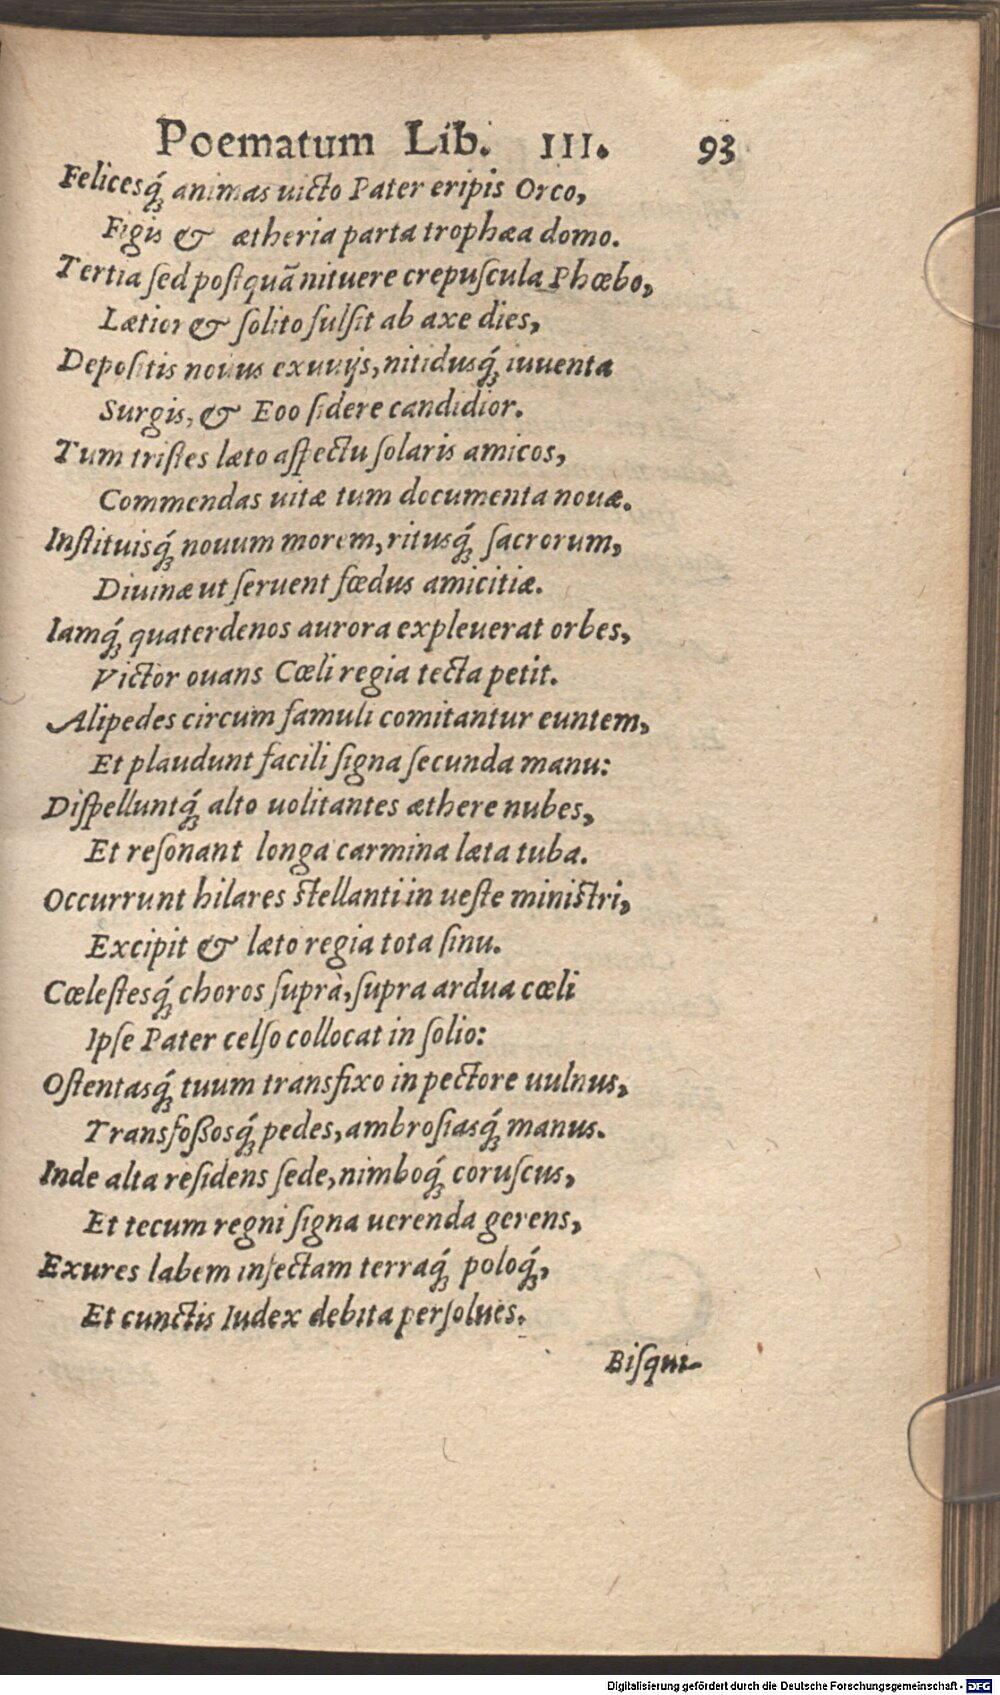 Poematum Lib. III. 93
Felicesq́; animas uicto Pater eripis Orco,
Figis & ætheria parta trophæa domo.
Tertia ſed poſtquã nituere crepuſcula Phœbo,
Lætior & ſolito fulſit ab axe dies,
Depoſitis nouus exuuijs, nitidusq́; iuuenta
Surgis, & Eoo ſidere candidior.
Tum triſtes læto aſpectu ſolaris amicos,
Commendas uitæ tum documenta nouæ.
Inſtituisq́; nouum morem, ritusq́; ſacrorum,
Diuinæ ut ſeruent fœdus amicitiæ.
Iamq́; quaterdenos aurora expleuerat orbes,
Victor ouans Cœli regia tecta petit.
Alipedes circum famuli comitantur euntem,
Et plaudunt facili ſigna ſecunda manu:
Diſpelluntq́; alto uolitantes æthere nubes,
Et reſonant longa carmina læta tuba.
Occurrunt hilares ſtellanti in ueſte miniſtri,
Excipit & læto regia tota ſinu.
Cœleſtesq́; choros ſuprà, ſupra ardua cœli
Ipſe Pater celſo collocat in ſolio:
Oſtentasq́; tuum transfixo in pectore uulnus,
Transfoßosq́; pedes, ambroſiasq́; manus.
Inde alta reſidens ſede, nimboq́; coruſcus,
Et tecum regni ſigna uerenda gerens,
Exures labem infectam terraq́; poloq́;,
Et cunctis Iudex debita perſolues.
Biſqui-
Digitalisierung gefördert durch die Deutsche Forschungsgemeinschaft - DFG